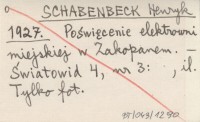 SCHABENBECK Henryk
1927. Poświęcenie elektrowni
miejskiej w Zakopanem. –
Światowid 4, nr 3: , il.
Tylko fot.
15/049/1290